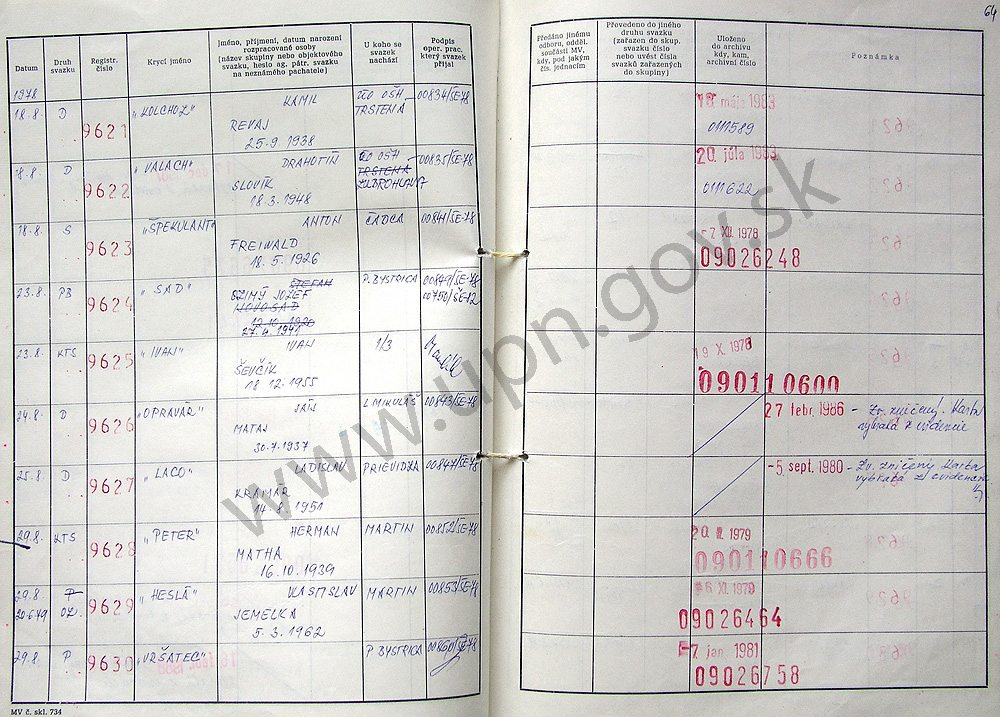 64
Datum
Druh svazku
Registr. číslo
Krycí jméno
Jméno, příjmení, datum narození
rozpracované osoby
(název skupiny nebo objektového
svazku, heslo ag. pátr. svazku
na neznámého pachatele)
U koho se
svazek
nachází
Podpis
oper. prac.
který svazek
přijal
Předáno jinému
odboru, odděl.
součásti MV,
kdy, pod jakým
čís. jednacím
Převedeno do jiného
druhu svazku
(zařazen do skup.
svazku číslo
nebo uvést čísla
svazků zařazených
do skupiny)
Uloženo
do archivu
kdy, kam,
archivní číslo
Poznámka
1978
18.8. D 9621 "KOLCHOZ" KAMIL
REVAJ
25.9 1938
TRSTENÁ
00834/SE-78
18. mája 1983
0111589
18.8. D 9622 "VALACH"
SLOVÍK
18.3.1948
TRSTENÁ
00835/SE-78
20. júla 1983
0111622
18.8. S 9623 "ŠPEKULANT" ANTON
FREIWALD
18.5.1926
ČADCA
00841/SE-78
-7 XII. 1978
09026248
23.8. PB 9624 "SAD" ŠTEFAN
JOZEF
NOVOSAD
P. BYSTRICA
23.8. KTS 9625 "IVAN" IVAN
ŠEVČÍK
18.12.1955
1/3
19 X. 1978
090110600
24.8. D 9626 "OPRAVÁR" JÁN
MATAJ
30.7.1937
L. MIKULÁŠ
00843/SE-78
27 febr. 1986 - Zv. zničený. Karta
vybratá z evidencie
25.8. D 9627 "LACO" LADISLAV
KRAMÁR
14.8.1951
PRIEVIDZA
00847/SE-78
-5 sept. 1980 - Zv. zničený Karta
vybratá z evidencie
29.8. KTS 9628 "PETER" HERMAN
MATHA
16.10.1939
MARTIN
00852/SE-78
1979
090110666
29.8. P
20.6.79 9629 "HESLÁ" VLASTISLAV
JEMELKA
5.3.1962
MARTIN
00853/SE-78
6 XI. 1979
09026464
29.8. P 9630 "VRŠATEC"
P. BYSTRICA
00860/SE-78
7 jan. 1981
09026758
MV č. skl. 734
www.upn.gov.sk